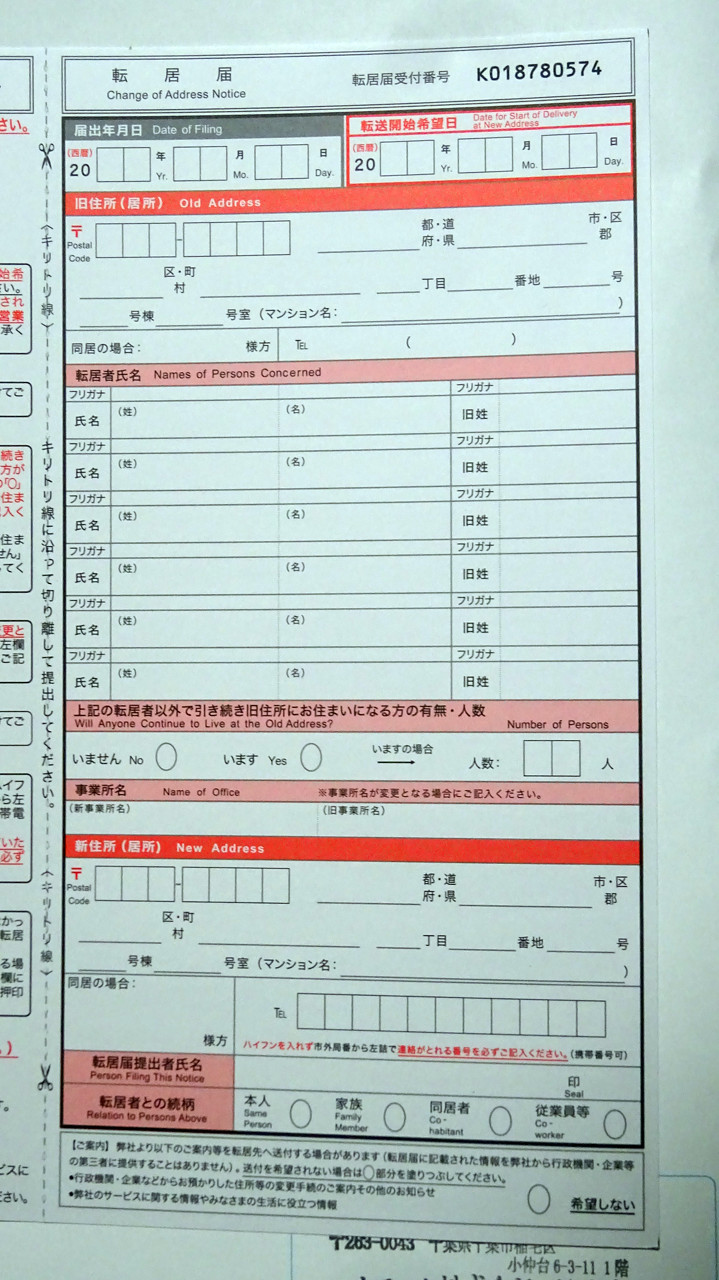 転居届
Change of Address Notice
転居届受付番号 K018780574
届出年月日 Date of Filing
(西暦)
20 年 月 日
Yr. Mo. Day.
転送開始希望日 Date for Start of Delivery at New Address
(西暦)
20 年 月 日
Yr. Mo. Day.
旧住所(居所) Old Address
〒
Postal Code
都・道
府・県
市・区
郡
区・町
村
丁目 番地 号
号棟 号室(マンション名: )
同居の場合: 様方 TEL ( )
転居者氏名 Names of Persons Concerned
フリガナ フリガナ
氏名 (姓) (名) 旧姓
フリガナ フリガナ
氏名 (姓) (名) 旧姓
フリガナ フリガナ
氏名 (姓) (名) 旧姓
フリガナ フリガナ
氏名 (姓) (名) 旧姓
フリガナ フリガナ
氏名 (姓) (名) 旧姓
フリガナ フリガナ
氏名 (姓) (名) 旧姓
上記の転居者以外で引き続き旧住所にお住まいになる方の有無・人数
Will Anyone Continue to Live at the Old Address? Number of Persons
いません No います Yes いますの場合 人数: 人
事業所名 Name of Office ※事業所名が変更となる場合にご記入ください。
(新事業所名) (旧事業所名)
新住所(居所) New Address
〒
Postal Code
都・道
府・県
市・区
郡
区・町
村
丁目 番地 号
号棟 号室(マンション名: )
同居の場合:
様方
TEL
ハイフンを入れず市外局番から左詰で連絡がとれる番号を必ずご記入ください。(携帯番号可)
転居届提出者氏名
Person Filing This Notice
印
Seal
転居者との続柄
Relation to Persons Above
本人
Same Person
家族
Family Member
同居者
Co-habitant
従業員等
Co-worker
【ご案内】弊社より以下のご案内等を転居先へ送付する場合があります(転居届に記載された情報を弊社から行政機関・企業等
の第三者に提供することはありません)。送付を希望されない場合は○部分を塗りつぶしてください。
•行政機関・企業などからお預かりした住所等の変更手続のご案内その他のお知らせ
•弊社のサービスに関する情報やみなさまの生活に役立つ情報
希望しない
(キリトリ線)
キリトリ線に沿って切り離して提出してください。
(キリトリ線)
〒263-0043 千葉県千葉市稲毛区
小仲台6-3-11 1階